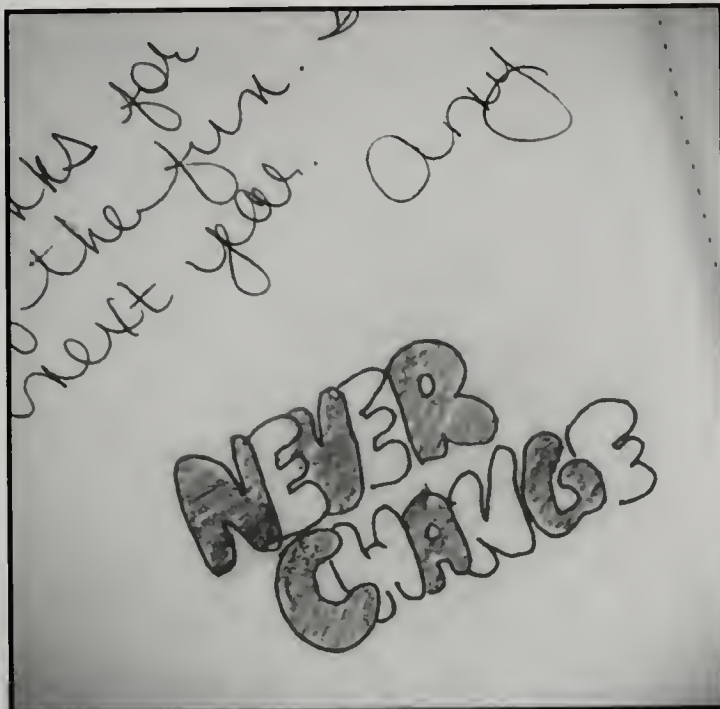 nks for
the fun.
next year.
Amy
NEVER
CHANGE